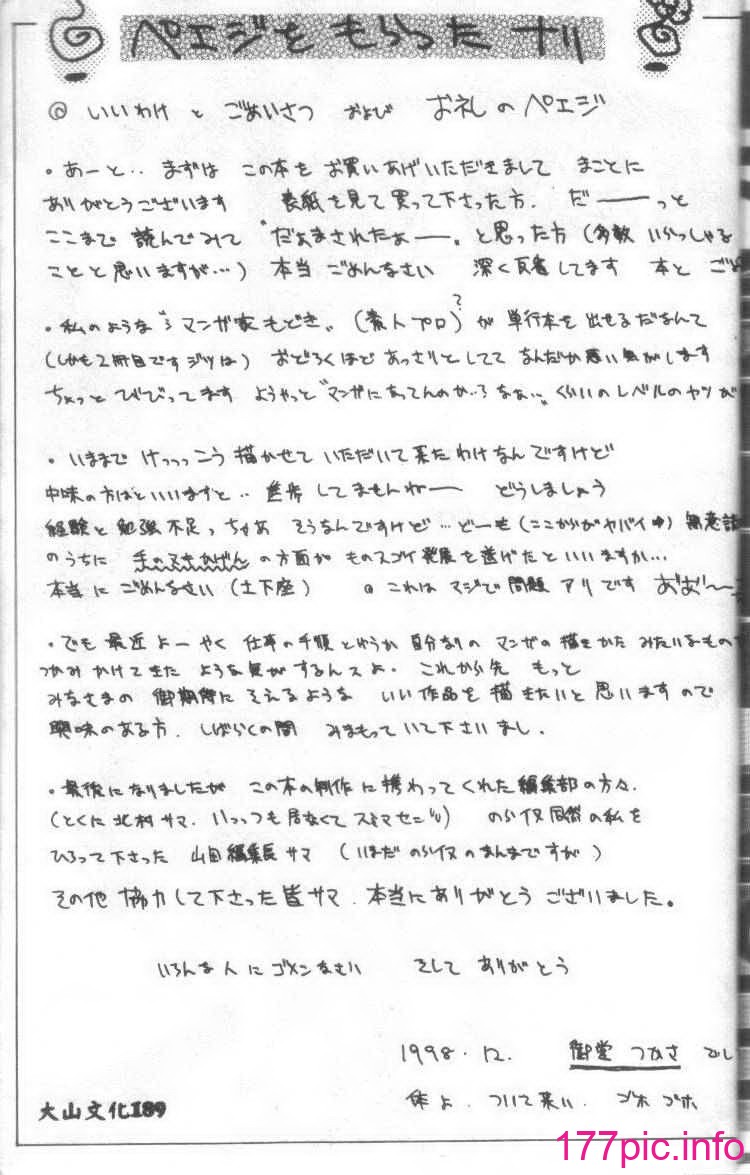 ペエジをもらった ナリ
@ いいわけ と ごあいさつ および お礼 の ペエジ
・あーと‥ まずは この本を お買いあげいただきまして まことに
ありがとうございます 表紙を見て買って下さった方. だ――っと
ここまで 読んでみて "だぁまされたぁ――。と思った方 (多数 いらっしゃる
ことと思いますが…) 本当 ごめんなさい 深く反省してます 本と ごめ
・私のような マンガ家もどき。(素人プロ)? が 単行本を 出せるだなんて
(しかも2冊目です ジツは) おどろくほど あっさりとしてて なんだか悪い気がします
ちょっと びびってます ようやっと "マンガになってんのか‥ なぁ…" くらいの レベルの ヤツが
・いままで けっっっこう 描かせて いただいて来たわけなんですけど
中味の方はといいますと‥ 進歩 してませんねー どうしましょう
経験と 勉強不足っちゃあ そうなんですけど…どーも (ここからがヤバイ) 無意識
のうちに 手のヌキかげん の方面が ものスゴイ発展を遂げたといいますか…
本当に ごめんなさい (土下座) @ これは マジで 問題 アリです おお〜
・でも 最近 よーやく 仕事の手順 とゆうか 自分なりの マンガの 描きかた みたいなもの
つかみかけてきた ような気がするんスよ. これから先 もっと
みなさまの 御期待に そえるような いい作品を 描きたいと 思いますので
興味のある方. しばらくの間 みまもって いて下さいまし.
・最後になりましたが この本の制作に携わってくれた編集部の方々.
(とくに北村サマ. いっつも居なくて スミマセン) のらイヌ同然の私を
ひろって下さった 山田編集長サマ (いまだ のらイヌのまんまですが)
その他 協力して下さった皆サマ. 本当にありがとう ございました。
いろんな人にゴメンなさい そして ありがとう
1998.12. 御堂 つかさ でし
体よ. ついて来い. ゴホ ゴホ
大山文化I89
177pic.info